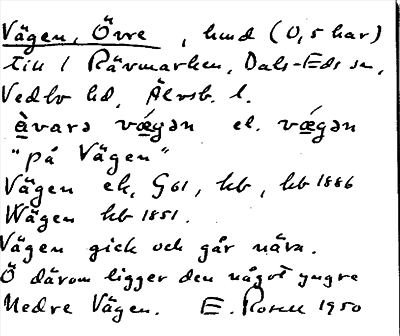 Vägen, Övre, lund (0,5 har)
till 1 Rävmarken, Dals-Eds sn,
Vedbo hd, Älvsb. l.
àvarə vǽgən el. vǽgən
"på Vägen"
Vägen ek, G61, hb, hb 1886
Wägen hb 1851.
Vägen gick och går nära.
Ö därom ligger den något yngre
Nedre Vägen. E. Rosell 1950